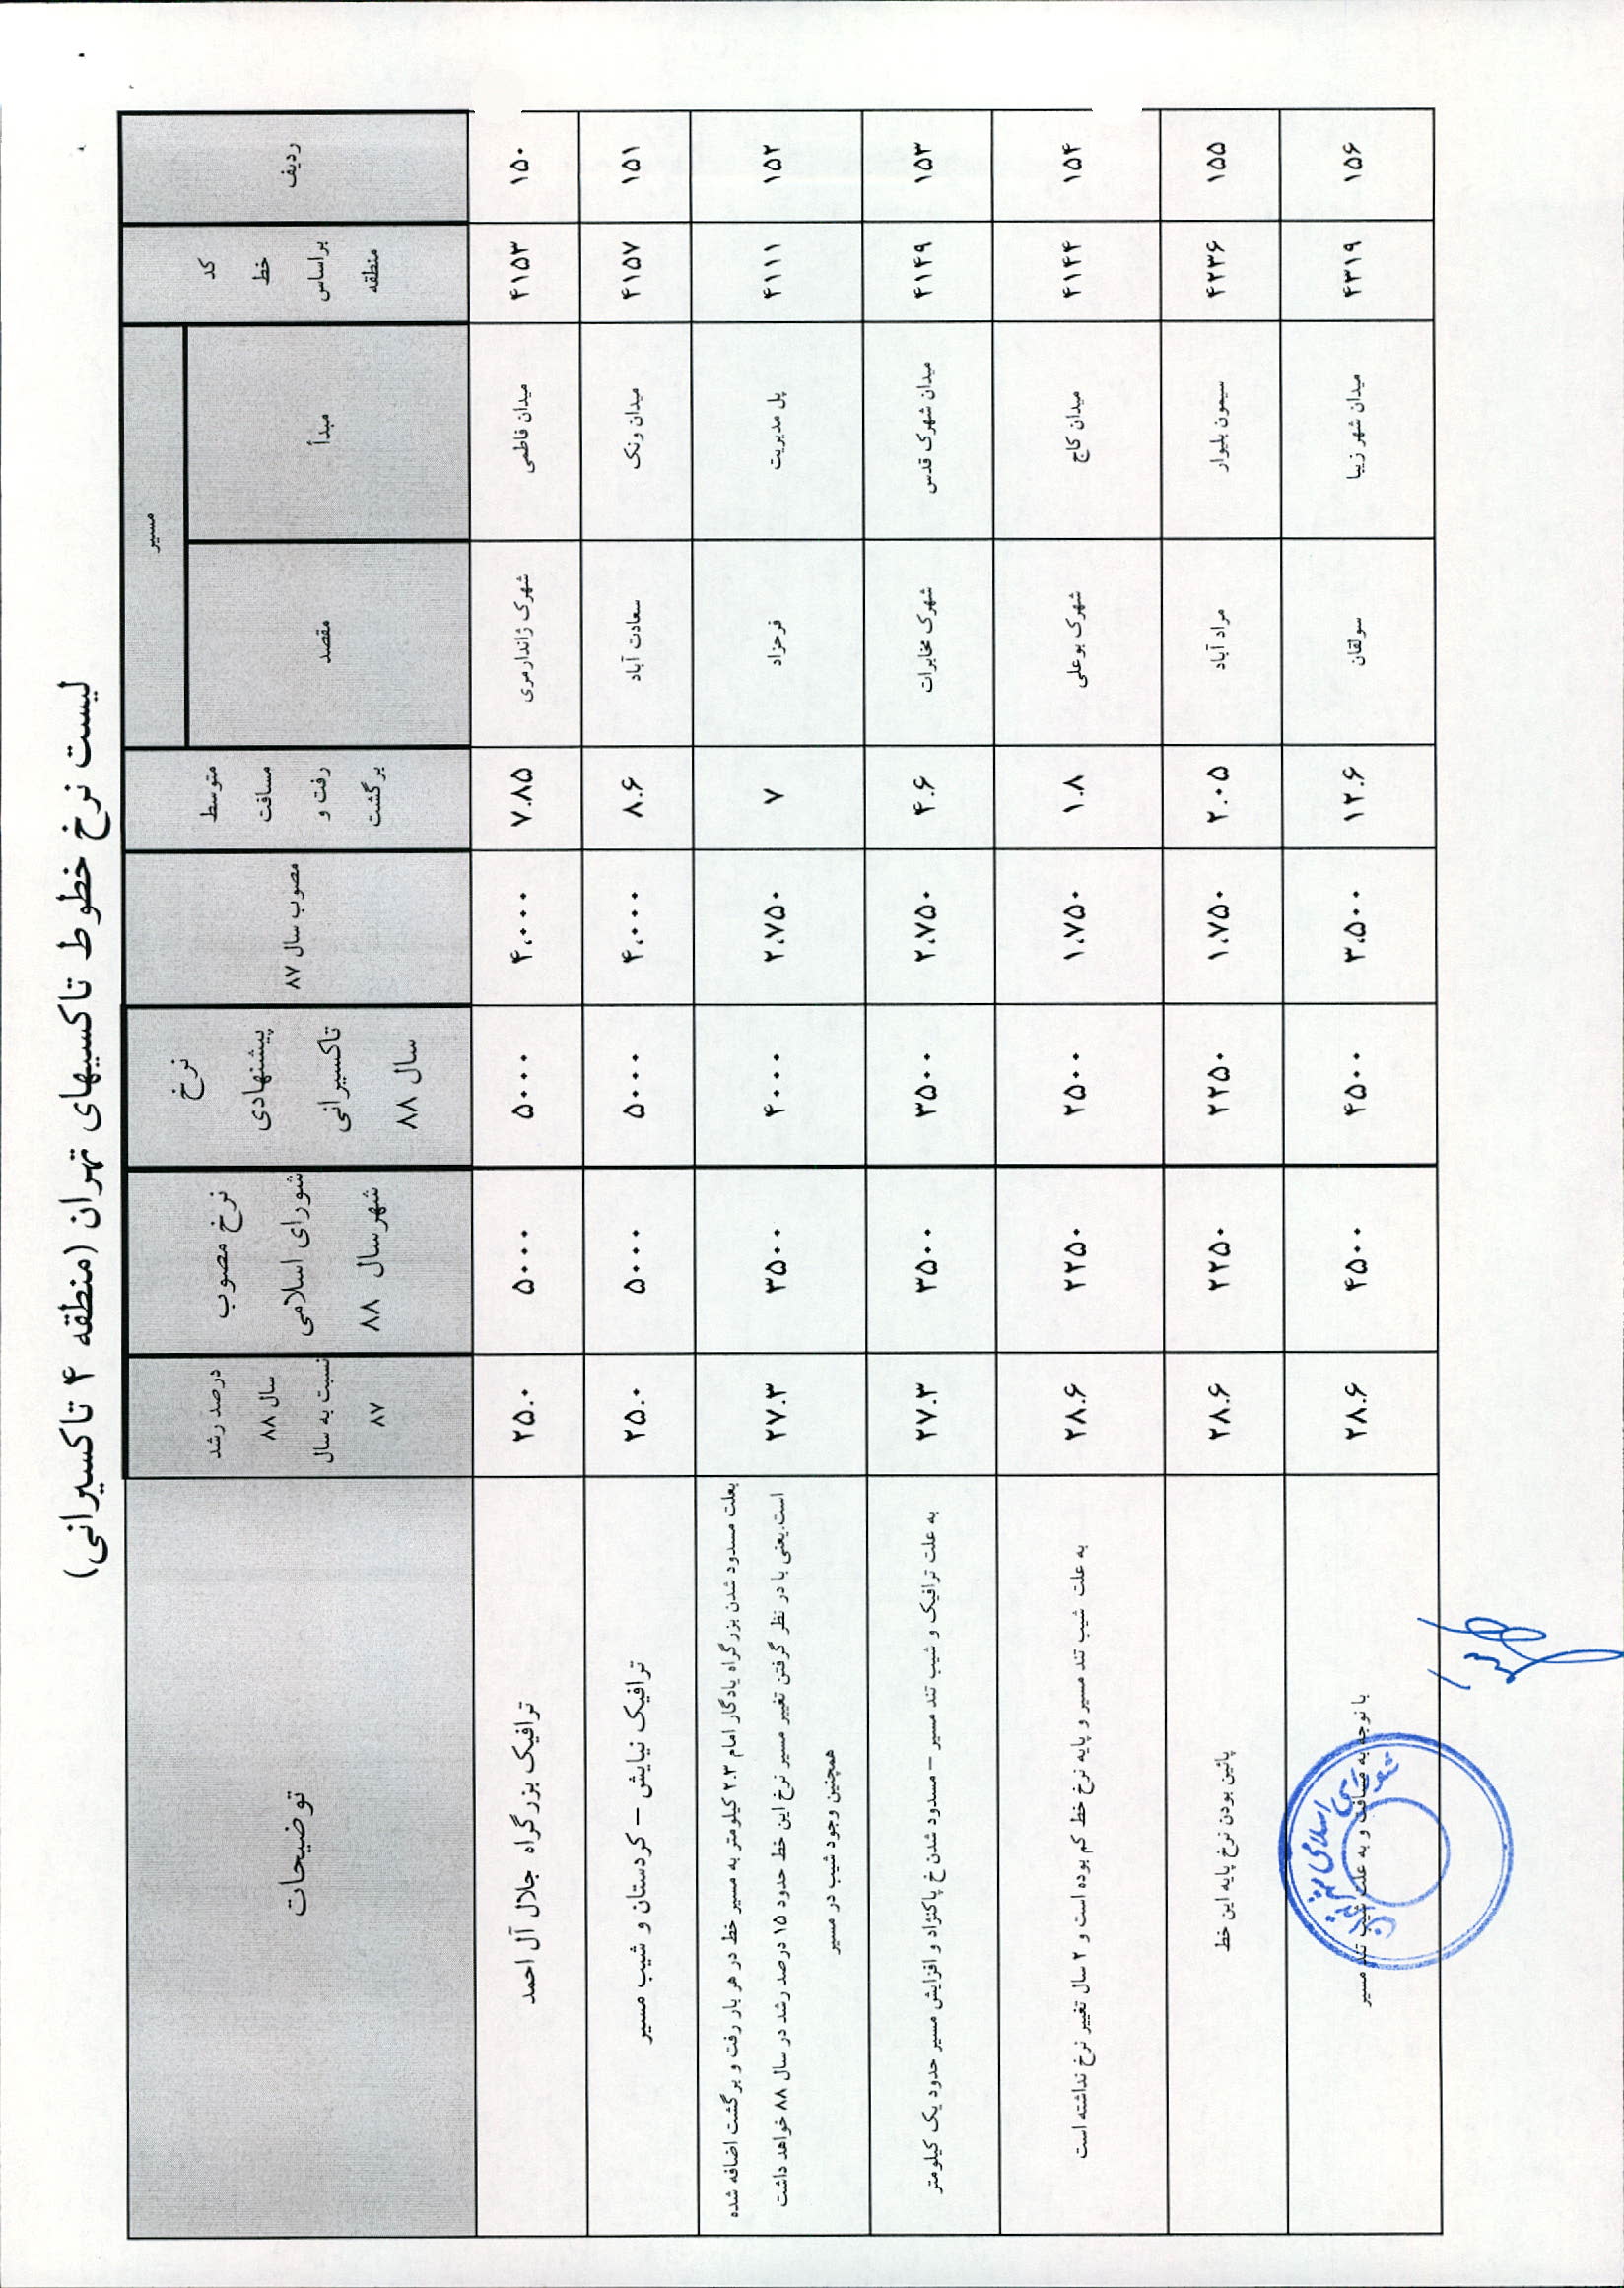 لیست نرخ خطوط تاکسیهای تهران (منطقه ۴ تاکسیرانی)
ردیف
کد
خط
براساس
منطقه
مسیر
مبدأ
مقصد
متوسط
مسافت
رفت و
برگشت
مصوب سال ۸۷
نرخ
پیشنهادی
تاکسیرانی
سال ۸۸
نرخ مصوب
شورای اسلامی
شهر سال ۸۸
درصد رشد
سال ۸۸
نسبت به سال
۸۷
توضیحات
۱۵۰ ۴۱۵۳ میدان فاطمی شهرک ژاندارمری ۷.۸۵ ۴.۰۰۰ ۵۰۰۰ ۵۰۰۰ ۲۵.۰ ترافیک بزرگراه جلال آل احمد
۱۵۱ ۴۱۵۷ میدان ونک سعادت آباد ۸.۶ ۴.۰۰۰ ۵۰۰۰ ۵۰۰۰ ۲۵.۰ ترافیک نیایش – کردستان و شیب مسیر
۱۵۲ ۴۱۱۱ پل مدیریت فرحزاد ۷ ۲.۷۵۰ ۴۰۰۰ ۳۵۰۰ ۲۷.۳
بعلت مسدود شدن بزرگراه یادگار امام ۲.۳ کیلومتر به مسیر خط در هر بار رفت و برگشت اضافه شده
است.یعنی با در نظر گرفتن تغییر مسیر نرخ این خط حدود ۱۵ درصد رشد در سال ۸۸ خواهد داشت
همچنین وجود شیب در مسیر
۱۵۳ ۴۱۴۹ میدان شهرک قدس شهرک مخابرات ۴.۶ ۲.۷۵۰ ۳۵۰۰ ۳۵۰۰ ۲۷.۳ به علت ترافیک و شیب تند مسیر – مسدود شدن خ پاکنژاد و افزایش مسیر حدود یک کیلومتر
۱۵۴ ۴۱۴۴ میدان کاج شهرک بوعلی ۱.۸ ۱.۷۵۰ ۲۵۰۰ ۲۲۵۰ ۲۸.۶ به علت شیب تند مسیر و پایه نرخ خط کم بوده است و ۲ سال تغییر نرخ نداشته است
۱۵۵ ۴۲۳۶ سیمون بلیوار مراد آباد ۲.۰۵ ۱.۷۵۰ ۲۲۵۰ ۲۲۵۰ ۲۸.۶ پائین بودن نرخ پایه این خط
۱۵۶ ۴۳۱۹ میدان شهر زیبا سولقان ۱۲.۶ ۳.۵۰۰ ۴۵۰۰ ۴۵۰۰ ۲۸.۶ با توجه به مسافت و به علت شیب تند مسیر
شورای اسلامی شهر تهران